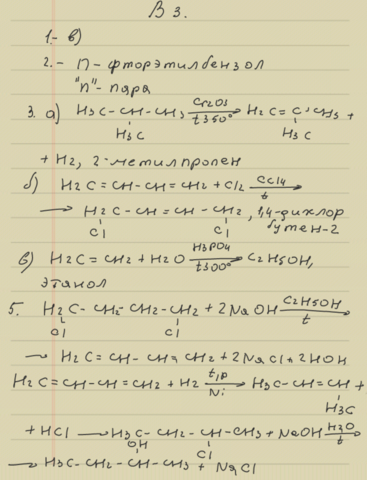 В 3.
1.- в)
2.- П- фторэтилбензол
"п"- пара
3. а) H3C-CH-CH3 Cr2O3 t350° H2C=C-CH3 +
H3C H3C
+ H2, 2-метилпропен
б) H2C=CH-CH=CH2 + Cl2 CCl4 t →
→ H2C-CH=CH-CH2, 1,4-дихлор
Cl Cl бутен-2
в) H2C=CH2 + H2O H3PO4 t300° → C2H5OH,
этанол
5. H2C-CH2-CH2-CH2 + 2NaOH C2H5OH t →
Cl Cl
→ H2C=CH-CH=CH2 + 2NaCl + 2HOH
H2C=CH-CH=CH2 + H2 t,p Ni → H3C-CH=CH +
H3C
+ HCl → H3C-CH2-CH-CH3 + NaOH H2O t →
OH Cl
→ H3C-CH2-CH-CH3 + NaCl